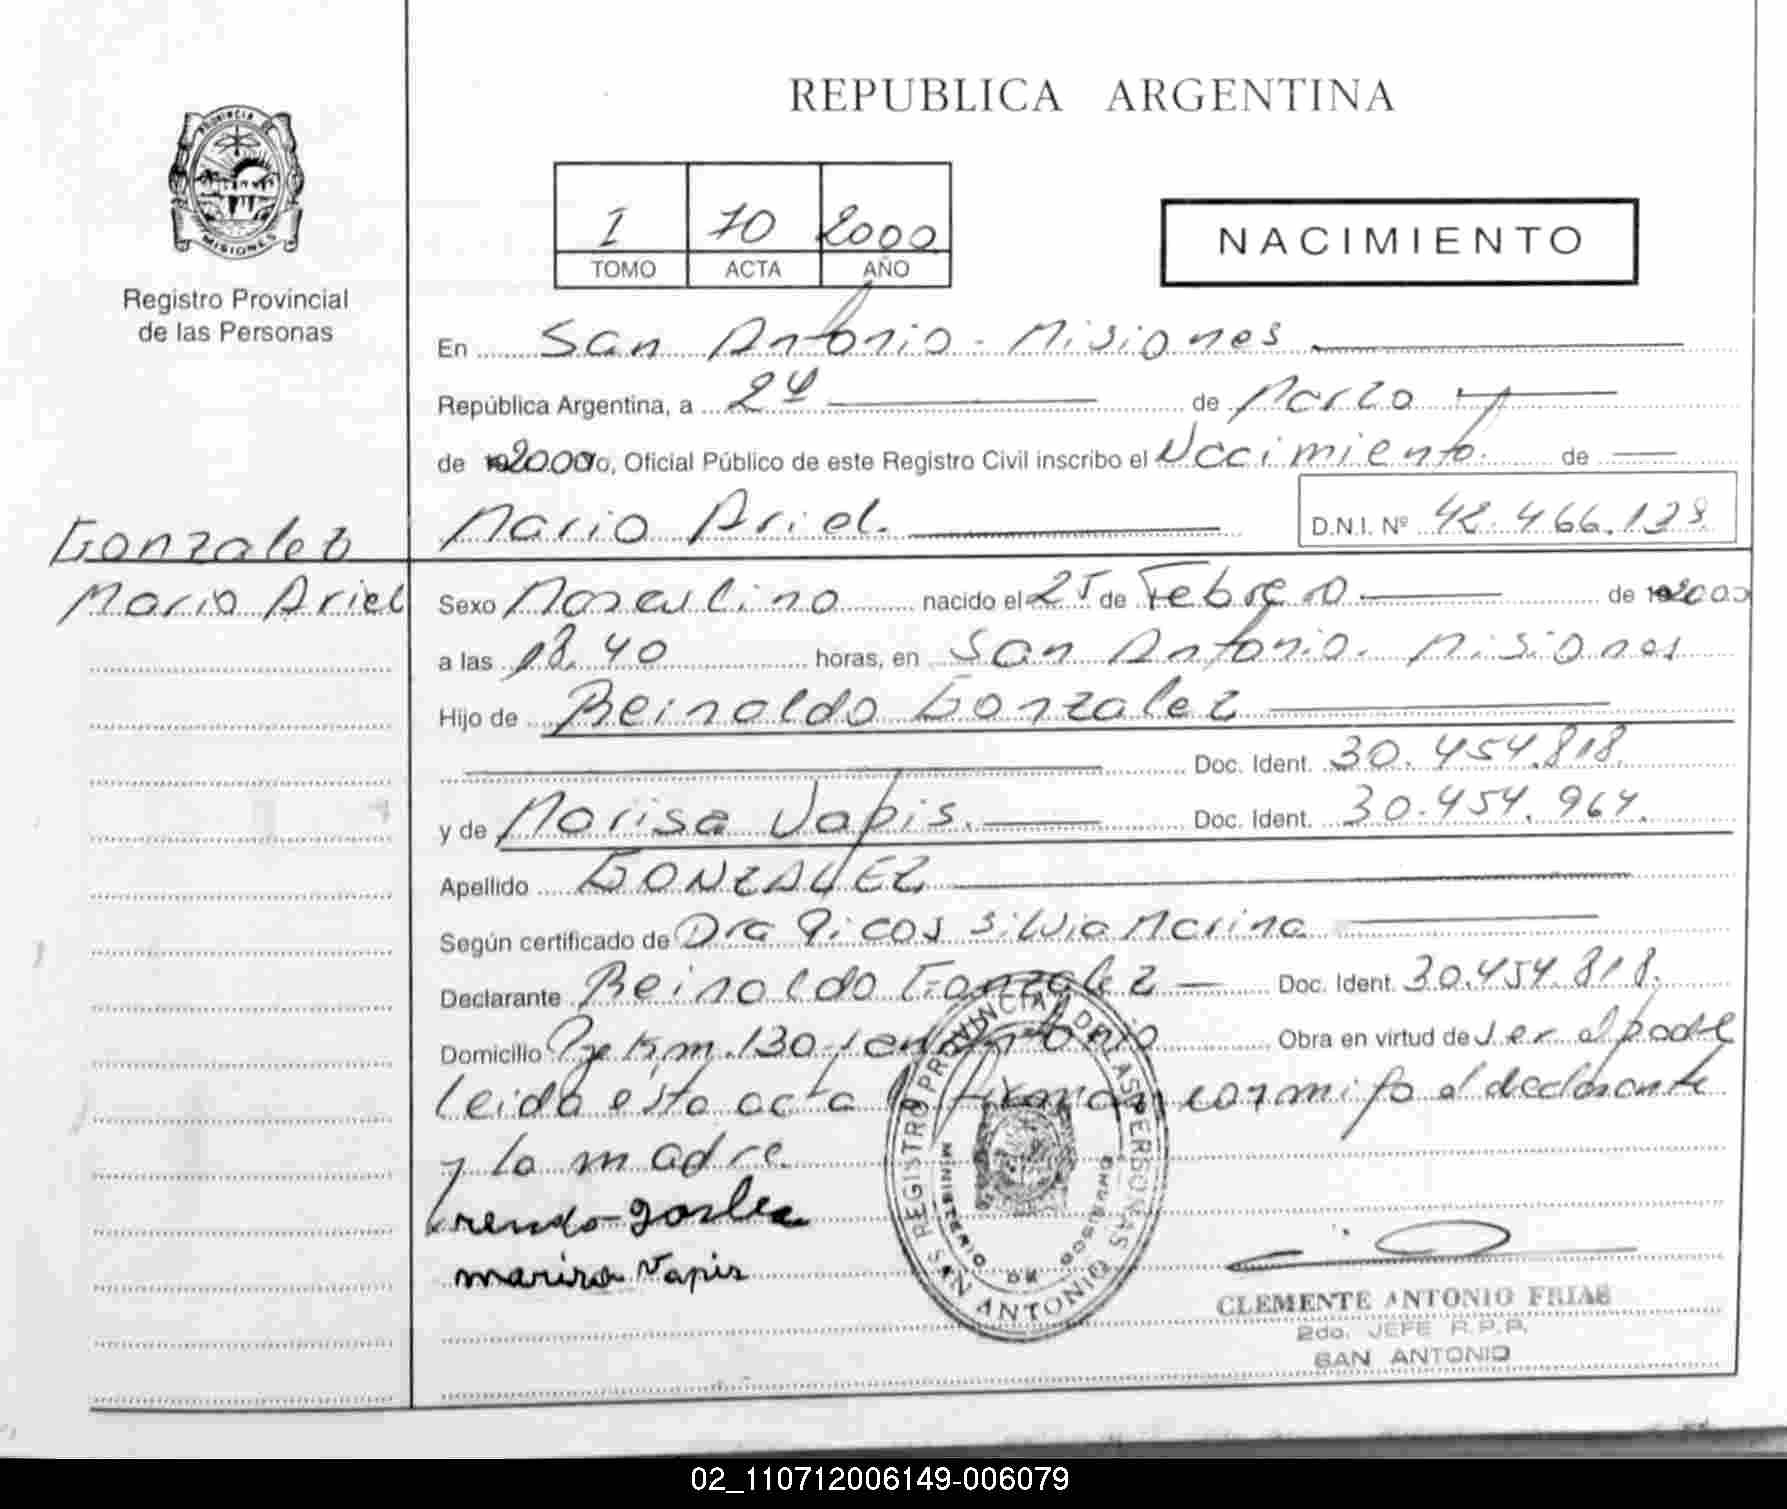 REPUBLICA ARGENTINA
PROVINCIA DE
MISIONES
Registro Provincial
de las Personas
I 70 2000
TOMO ACTA AÑO
NACIMIENTO
En San Antonio - Misiones
República Argentina, a 24 de Marzo
de 2000 yo, Oficial Público de este Registro Civil inscribo el Nacimiento de
Mario Ariel. D.N.I. Nº 42.466.138
Gonzalez
Mario Ariel
Sexo Masculino nacido el 25 de Febrero de 2000
a las 18.40 horas, en San Antonio. Misiones
Hijo de Reinaldo Gonzalez
Doc. Ident. 30.454.818.
y de Marisa Vapis. Doc. Ident. 30.454.964.
Apellido GONZALEZ
Según certificado de Dra Picos Silvia Marina
Declarante Reinaldo Gonzalez Doc. Ident. 30.454.818.
Domicilio Pje Km. 130 San Antonio Obra en virtud de ser el padre
leida esta acta la firman conmigo el declarante
y la madre
marisa Vapis
REGISTRO PROVINCIAL DE LAS PERSONAS
MINISTERIO DE GOBIERNO
SAN ANTONIO
CLEMENTE ANTONIO FRIAS
2do. JEFE R.P.P.
SAN ANTONIO
02_110712006149-006079